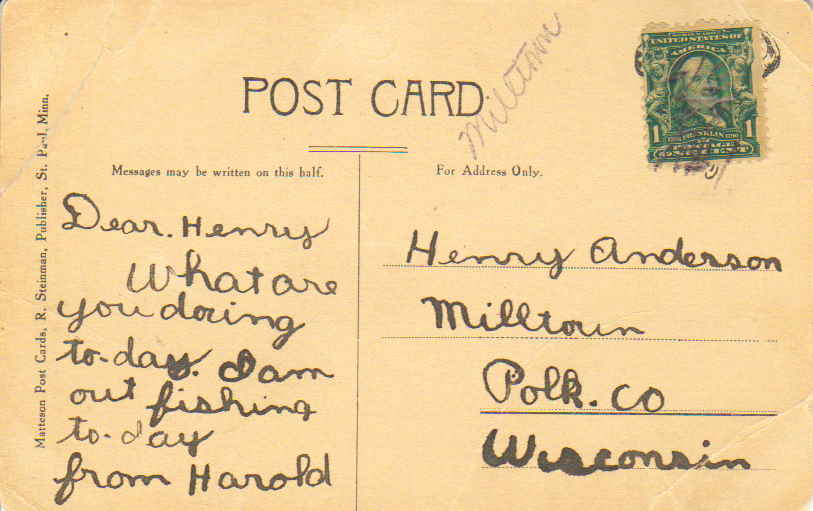 Milltown
UNITED STATES OF
AMERICA
1 FRANKLIN 1
POSTAGE
ONE CENT
POST CARD
Messages may be written on this half.
For Address Only.
Matteson Post Cards, R. Steinman, Publisher, St. Paul, Minn.
Dear. Henry
What are
you doring
to-day. I am
out fishing
to-day
from Harold
Henry Anderson
Milltown
Polk. Co
Wisconsin